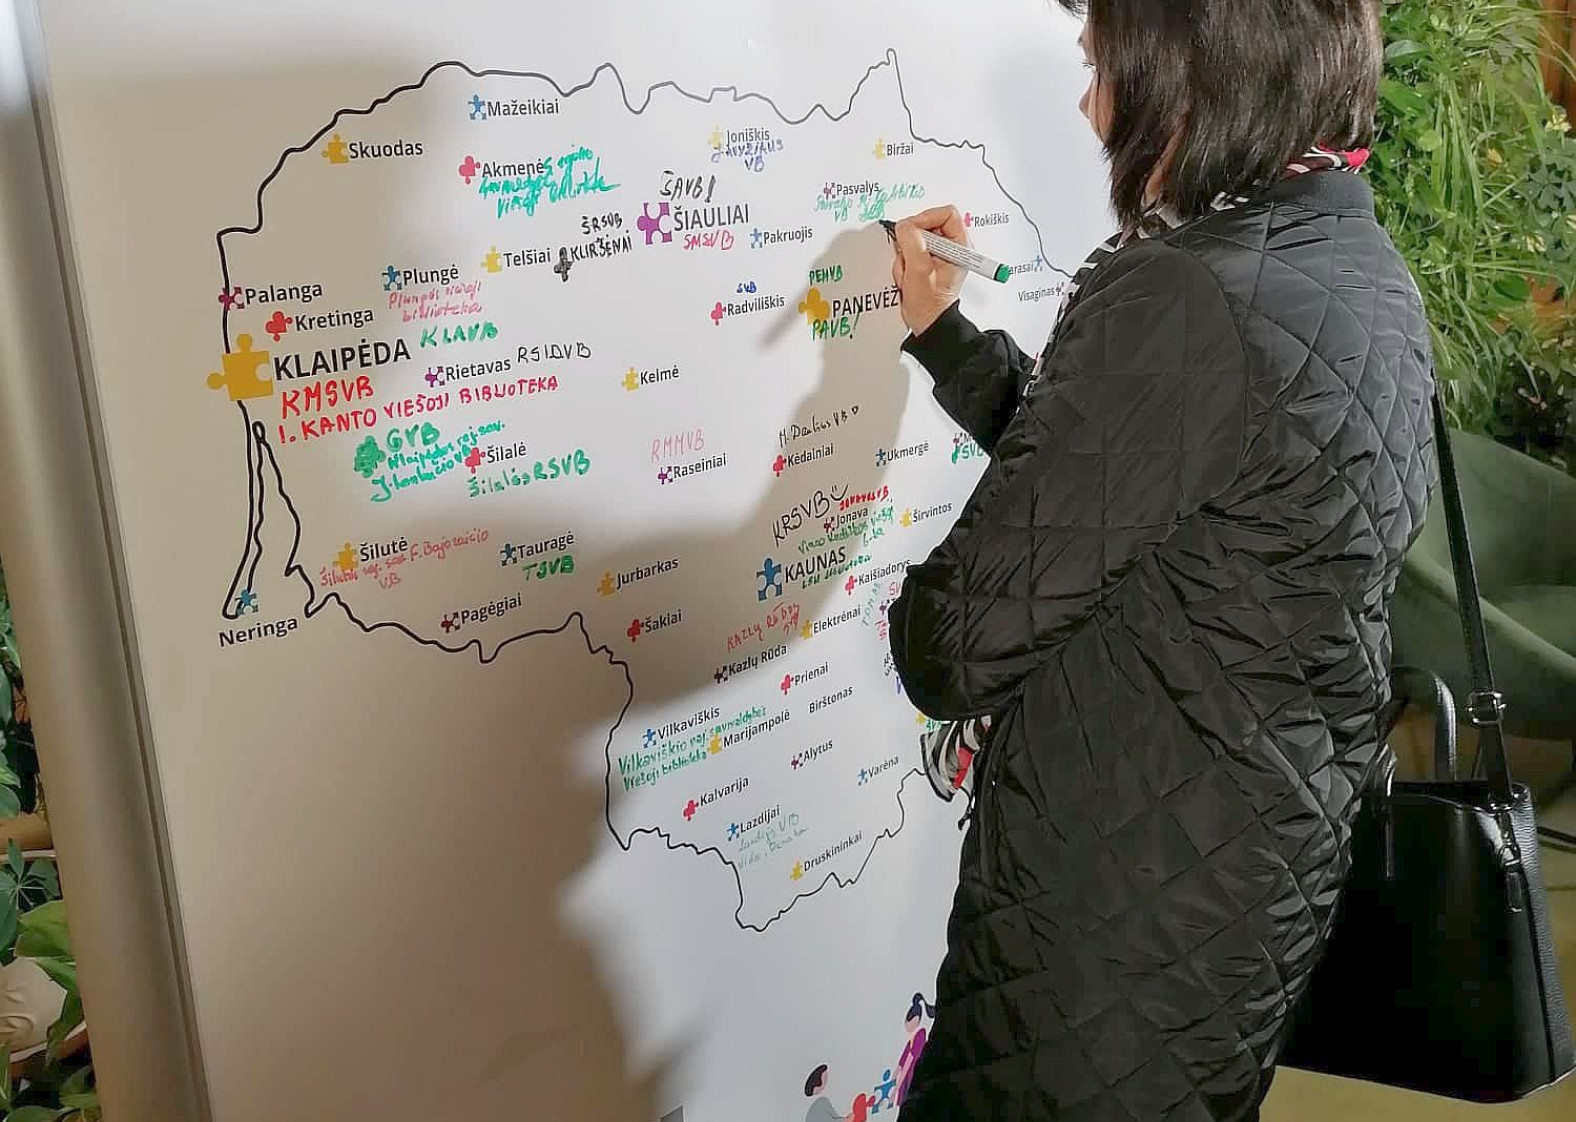 Mažeikiai
Skuodas
Joniškis
VB
Biržai
Akmenės rajono
savivaldybės
viešoji biblioteka
ŠAVB!
Pasvalys
VB
ŠRSVB
ŠIAULIAI
Rokiškis
KURŠĖNAI
SMSVB
Pakruojis
Telšiai
Plungė
arasai
Visaginas
Palanga
Plungės viešoji
biblioteka
SVB
Radviliškis
PEMVB
PANEVĖŽ
PAVB!
Kretinga
KLAVB
KLAIPĖDA
Rietavas RSIOVB
Kelmė
KMSVB
I. KANTO VIEŠOJI BIBLIOTEKA
GVB
Klaipėdos raj. sav.
Šilalė
Šilalės RSVB
RMMVB
Raseiniai
M. Daukšos VB
Kėdainiai
Ukmergė
KRSVB
JONAVOS VB
Jonava
Širvintos
KAUNAS
Kaišiadorys
Šilutė F. Bajoraičio
Šilutės raj. sav.
VB
Tauragė
TSVB
Jurbarkas
Neringa
Pagėgiai
Šakiai
KAZLŲ RŪDOS
Elektrėnai
Kazlų Rūda
Prienai
Birštonas
Vilkaviškis
Vilkaviškio raj. savivaldybės
viešoji biblioteka
Marijampolė
Alytus
Varėna
Kalvarija
Lazdijai
Druskininkai